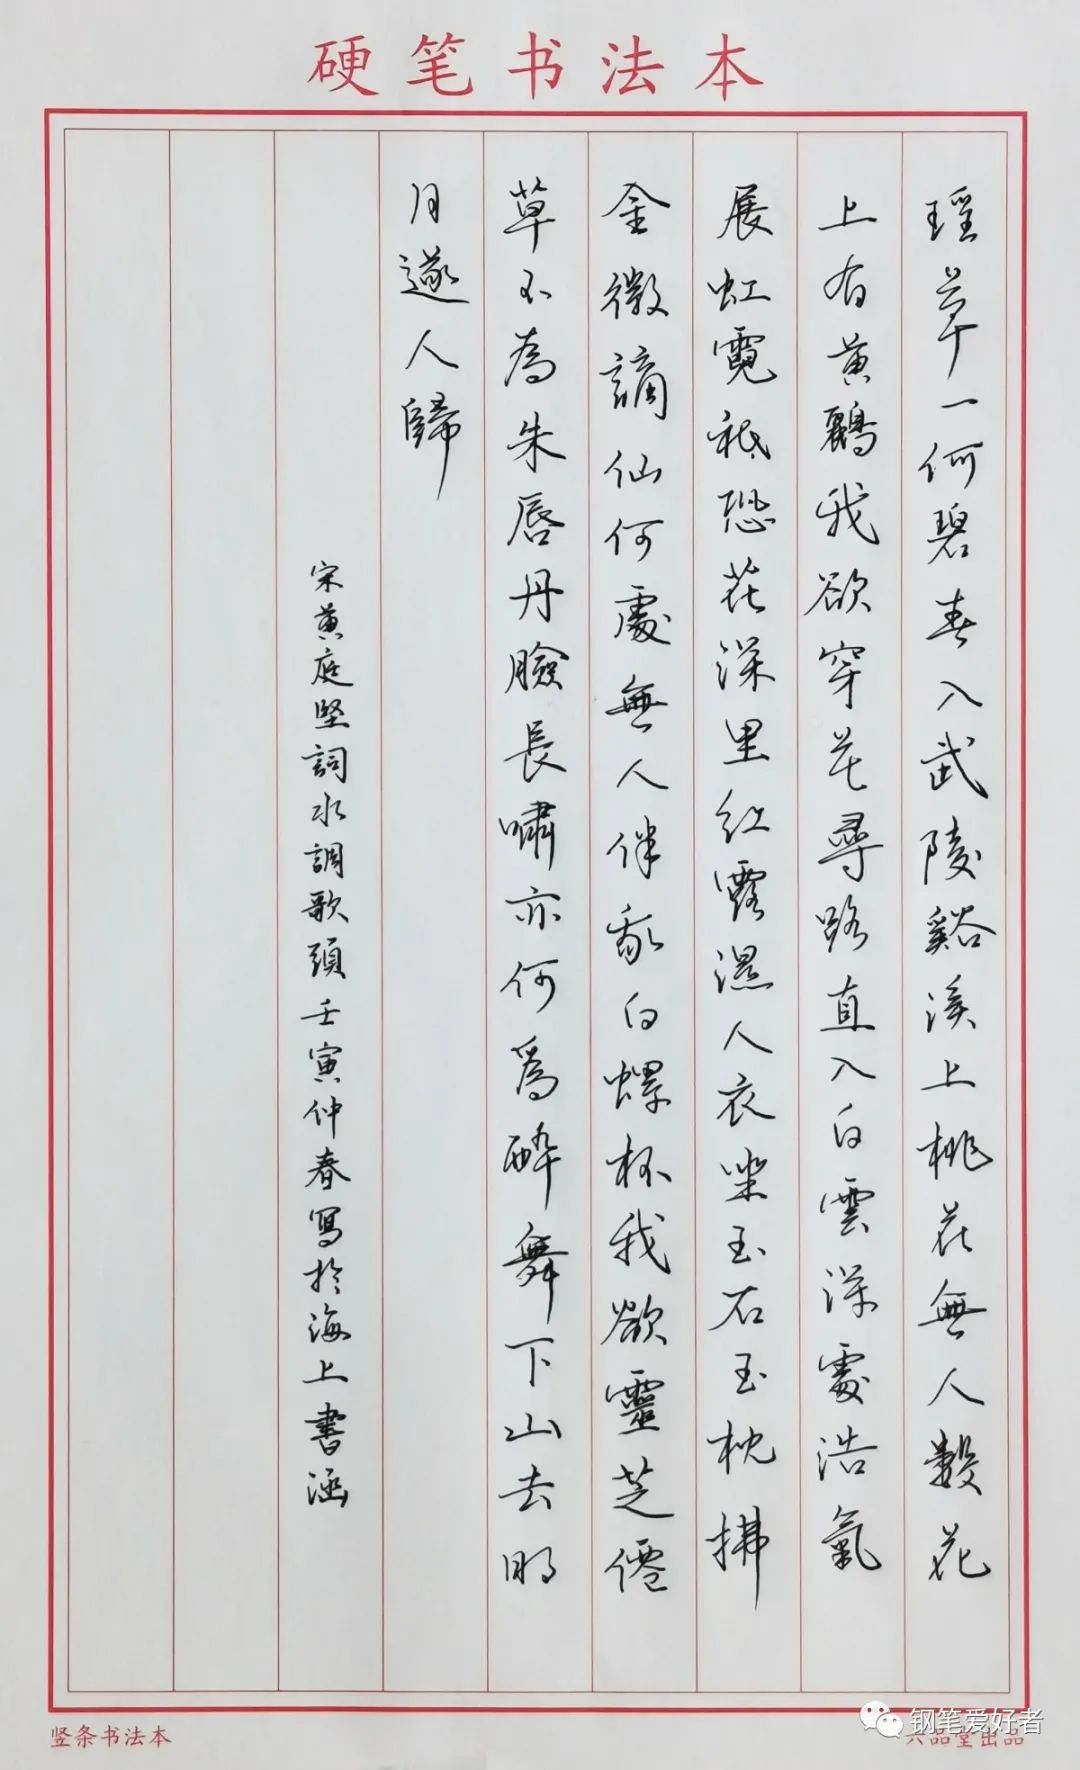 硬笔书法本
瑶草一何碧春入武陵谿溪上桃花無人數花
上有黄鸝我欲穿花尋路直入白雲深處浩氣
展虹霓祗恐花深里红露濕人衣坐玉石玉枕拂
金徽謫仙何處無人伴我白螺杯我欲靈芝僊
草不為朱唇丹臉長嘯亦何爲醉舞下山去明
月逐人歸
宋黄庭坚詞水調歌頭壬寅仲春寫於海上書涵
竖条书法本
六品堂出品
钢笔爱好者